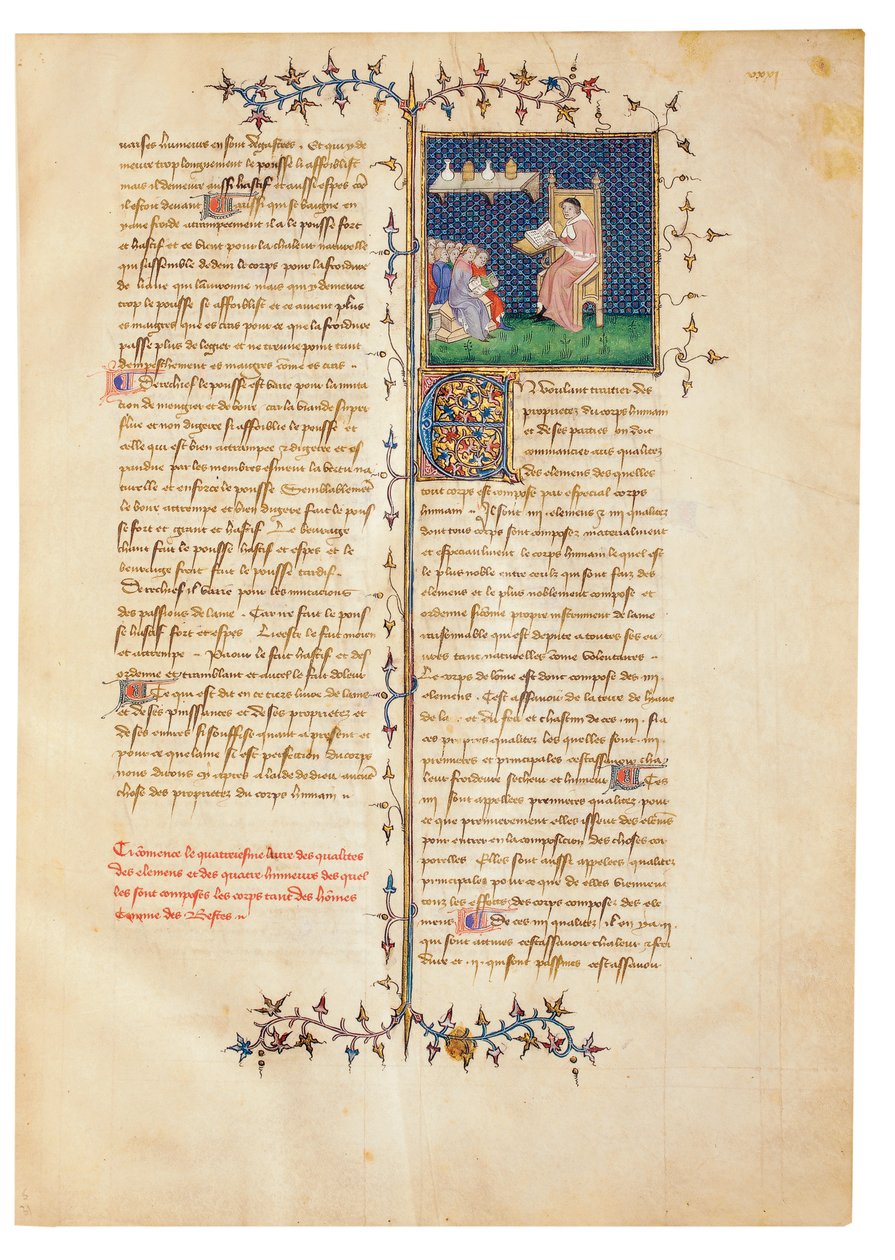 uaises humeurs en sont degastees . Et qui y de
meure trop longuement le pousse li affoiblist
mais il demeure aussi hastif et aussi espes come
il estoit devant Aussi qui se baigne en
yaue froide attrempeement il a le pousse fort
et hastif et ce vient pour la chaleur naturelle
qui sassemble dedens le corps pour la froidure
de liaue qui lauironne mais qui y demeure
trop le pousse se affoiblist et ce avient plus
es maigres que es cras pour ce que la froidure
passe plus de legier et ne treuue point tant
dempeschement es maigres come es cras ..
Derechief le pousse est varie pour la muta
cion de mengier et de boire car la viande super
flue et non digeree si affeiblie le pousse et
celle qui est bien attrempee & digeree et es
pandue par les membres esmeut la vertu na
turelle et enforce le pousse Semblablement
le boire attrempe et bien digere fait le pous
se fort et grant et hastif Le beurage
chaut fait le pousse hastif et espes et le
beuurage froit fait le pousse tardif ..
Derechief il varie pour les mutacions
des passions de lame . Car ire fait le pous
se hastif fort et espes Leesce le fait moien
et attrempe .. Paour le fait hastif et des
ordenne et tramblant et aucel le fait doleur
Ce que est dit en ce tiers livre de lame
et de ses puissances et de ses proprietez et
de ses euures si souffise quant a present et
pour ce que lame si est perfection du corps
nous dirons cy apres a laide de dieu aucune
chose des proprietez du corps humain ..
Ci comence le quatriesme livre des qualites
des elemens et des quatre humeurs des quel
les sont composes les corps tant des homes
comme des Bestes ..
lxxv
EN voulant traitier des
proprietez du corps humain
et de ses parties on doit
commancier aus qualitez
des elemens des quelles
tout corps est compose par especial corps
humain .. Il sont .iiii. elemens & iiii qualitez
dont tous corps sont composez materialment
et especiaulment le corps humain le quel est
le plus noble entre ceulz qui sont faiz des
elemens et le plus noblement compose et
ordenne sicome propre instrument de lame
raisonnable qui est depute a toutes ses eu
ures tant naturelles come voluntaires ..
Le corps de lome est donc compose des .iiii.
elemens . Cest assavoir de la terre de lyaue
de la . et du feu et chascun de ces .iiii. si a
ces propres qualitez les quelles sont .iiii.
premieres et principales cestassavoir cha
leur froideure secheur et humeur Ces
iiii sont appellees premieres qualitez pour
ce que premierement elles issent des elemens
pour entrer en la composicion des choses cor
porelles Elles sont aussi appelees qualitez
principales pour ce que de elles viennent
touz les effects des corps composez des ele
mens De ces iiii qualitez il en y a .ii.
qui sont actives cestassavoir chaleur & froi
dure et .ii. qui sont passives cestassavoir